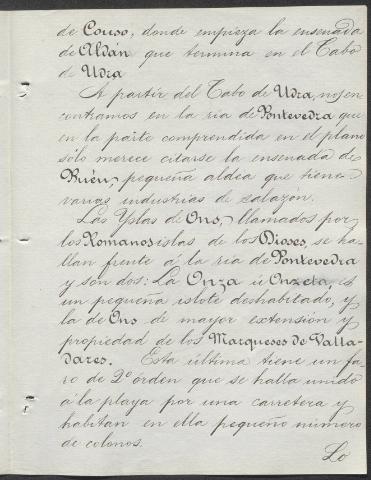 de Couso, donde empieza la ensenada
de Aldán que termina en el Cabo
de Udra
A partir del Cabo de Udra, nos en
contramos en la ria de Pontevedra que
en la parte comprendida en el plano
sólo merece citarse la ensenada de
Buéu, pequeña aldea que tiene
varias industrias de salazón.
Las Yslas de Ons, llamados por
los Romanos islas de los Dioses, se ha
llan frente á la ria de Pontevedra
y són dos: La Onza ú Onzeta, és
un pequeña islote deshabitado, y
la de Ons de mayor extensión y
propiedad de los Marqueses de Valla-
dares. Esta última tiene un fa
ro de 2º orden que se halla unido
á la playa por una carretera y
habitan en ella pequeño número
de colonos.
Lo